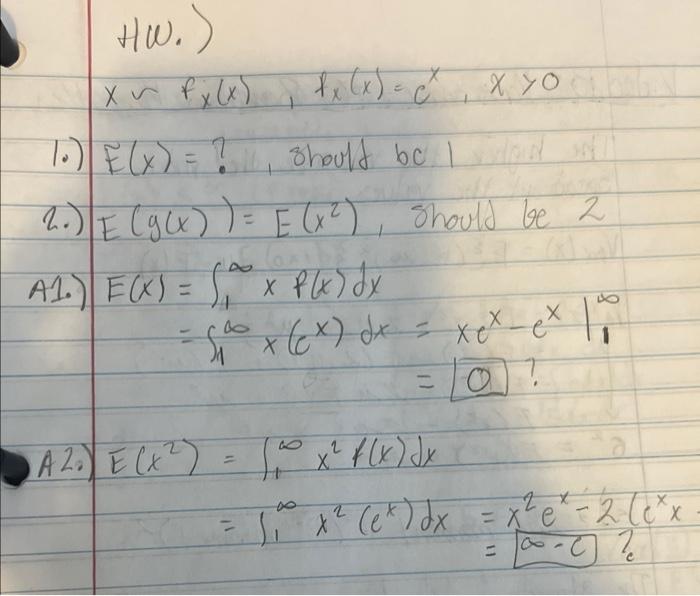 HW.)
X ~ fx(x), fx(x) = e^x, x > 0
1.) E(x) = ?, should be 1
2.) E(g(x)) = E(x²), should be 2
A1.) E(x) = ∫₁^∞ x f(x) dx
= ∫₁^∞ x(e^x) dx = xe^x - e^x |₁^∞
= 0 ?
A2.) E(x²) = ∫₁^∞ x² f(x) dx
= ∫₁^∞ x² (e^x) dx = x²e^x - 2(e^x x -
= ∞ - e ?